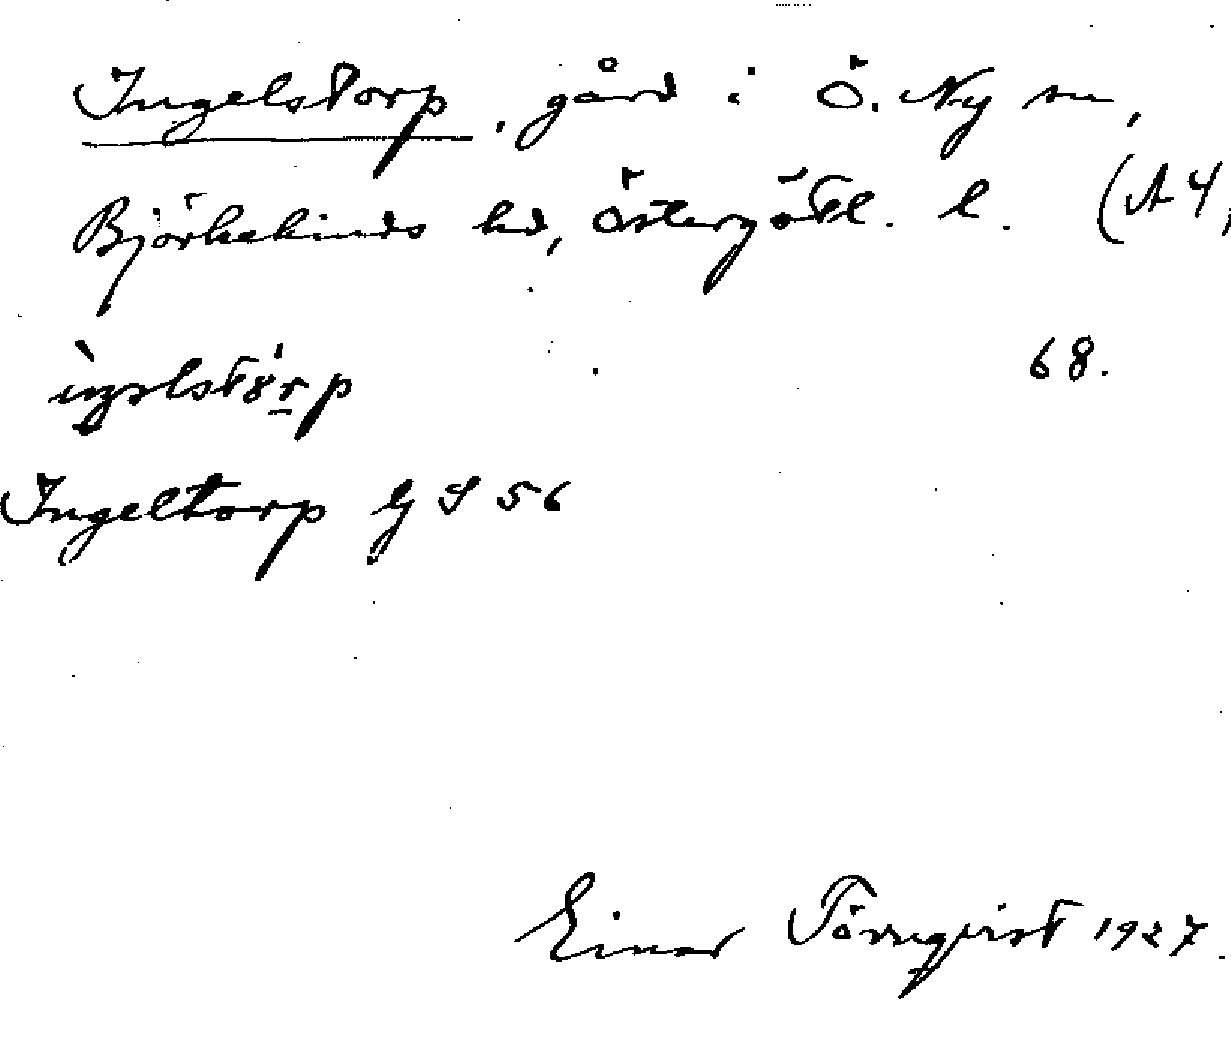 Ingelstorp, gård i Ö. Ny sn,
Björkekinds hd, Östergötl. l. (A 4,
68.
Ingeltorp GS 56
Einar Törnqvist 1927.